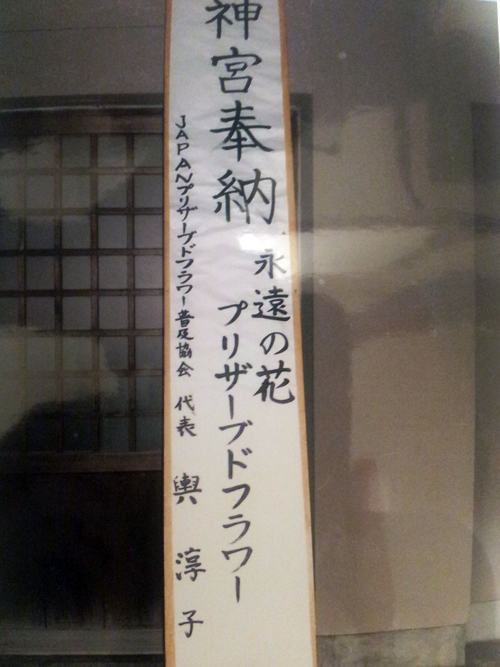 神宮奉納
永遠の花
プリザーブドフラワー
JAPANプリザーブドフラワー普及協会 代表 輿 淳子